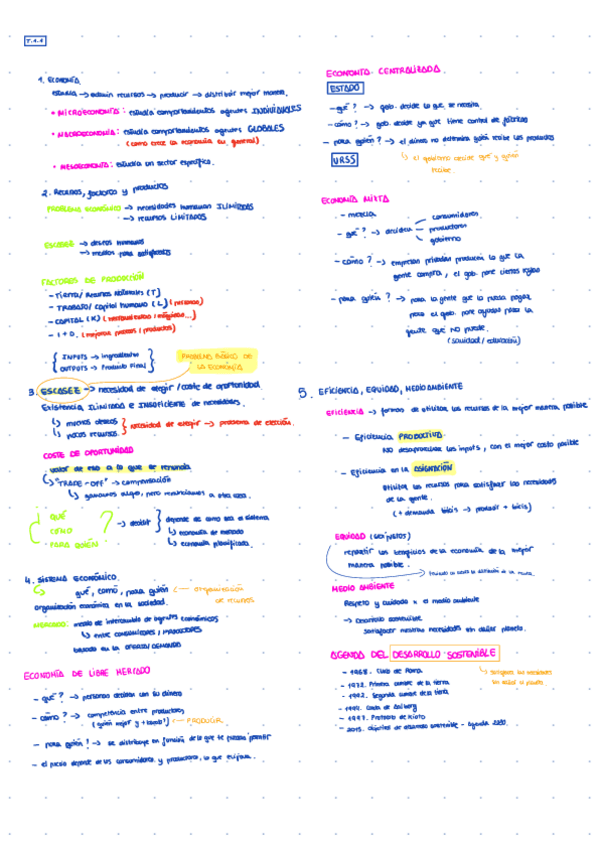 T.1.1
1. ECONOMÍA
estudia → admin recursos → producir → distribuir mejor manera.
• MICROECONOMÍA: estudia comportamientos agentes INDIVIDUALES
• MACROECONOMÍA: estudia comportamientos agentes GLOBALES
(como crece la economía en general)
• MESOECONOMÍA: estudia un sector específico.
2. Recursos, factores y productos
PROBLEMA ECONÓMICO → necesidades humanas ILIMITADAS
→ recursos LIMITADOS
ESCASEZ → deseos humanos
→ medios para satisfacerlos
FACTORES DE PRODUCCIÓN
- Tierra/ Recursos Naturales (T)
- TRABAJO/ capital humano (L) (personas)
- CAPITAL (K) (herramientas / máquinas...)
- I + D (mejorar procesos / productos)
INPUTS → ingredientes
OUTPUTS → Producto Final
PROBLEMA BÁSICO DE
LA ECONOMÍA
3. ESCASEZ → necesidad de elegir / coste de oportunidad
Existencia ILIMITADA e INSUFICIENTE de necesidades.
↳ muchos deseos
↳ pocos recursos
necesidad de elegir → problema de elección.
COSTE DE OPORTUNIDAD
valor de eso a lo que se renuncia
↳ "TRADE-OFF" → compensación
↳ ganamos algo, pero renunciamos a otra cosa.
QUÉ
CÓMO
PARA QUIÉN
? → decidir
depende de como sea el sistema
↳ economía de mercado
↳ economía planificada.
4. SISTEMA ECONÓMICO
↳ qué, cómo, para quién ← organización
de recursos
organización económica en la sociedad.
MERCADO: medio de intercambio de agentes económicos
↳ entre consumidores / PRODUCTORES
basado en la OFERTA/DEMANDA
ECONOMÍA DE LIBRE MERCADO
- qué? → personas deciden con su dinero
- cómo? → competencia entre productores
(quién mejor y + barato?) ← PRODUCIR
- para quién? → se distribuye en función de lo que te puedas permitir
- el precio depende de los consumidores y productores, lo que equilibra.
ECONOMÍA CENTRALIZADA
ESTADO
- qué? → gob. decide lo que se necesita
- cómo? → gob. decide ya que tiene control de fábricas
- para quién? → el dinero no determina quién recibe los productos
URSS
↳ el gobierno decide qué y quién
recibe.
ECONOMÍA MIXTA
- mezcla
- qué? → deciden
consumidores
productores
gobierno
- cómo? → empresas privadas producen lo que la
gente compra, el gob. pone ciertas reglas
- para quién? → para la gente que lo pueda pagar,
pero el gob. pone ayudas para la
gente que NO puede.
(sanidad / educación)
5. EFICIENCIA, EQUIDAD, MEDIO AMBIENTE
EFICIENCIA → forma de utilizar los recursos de la mejor manera posible
- Eficiencia PRODUCTIVA
NO desaprovechar los inputs, con el mejor costo posible
- Eficiencia en la ASIGNACIÓN
utilizar los recursos para satisfacer las necesidades
de la gente.
(+ demanda bicis → producir + bicis)
EQUIDAD
repartir los beneficios de la economía de la mejor
manera posible.
MEDIO AMBIENTE
Respeto y cuidado x el medio ambiente
→ Desarrollo sostenible
satisfacer nuestras necesidades sin dañar planeta.
AGENDA DEL DESARROLLO SOSTENIBLE
- 1968. Club de Roma
- 1972. Primera cumbre de la tierra
- 1992. Segunda cumbre de la tierra
- 1994. Carta de Aalborg
- 1997. Protocolo de Kioto
- 2015. Objetivos de desarrollo sostenible - Agenda 2030.